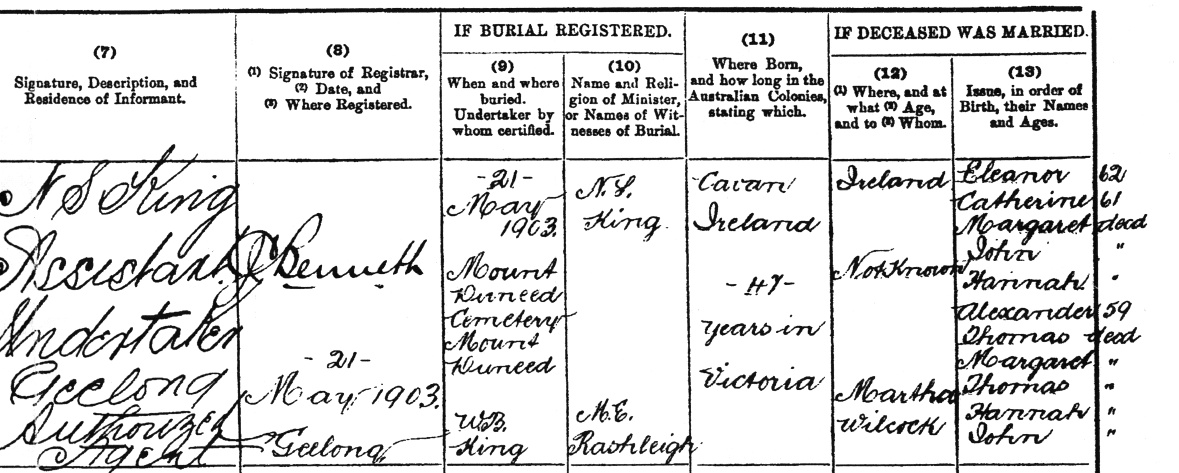 (7)
Signature, Description, and
Residence of Informant.
(8)
(1) Signature of Registrar,
(2) Date, and
(3) Where Registered.
IF BURIAL REGISTERED.
(9)
When and where
buried.
Undertaker by
whom certified.
(10)
Name and Reli-
gion of Minister,
or Names of Wit-
nesses of Burial.
(11)
Where Born,
and how long in the
Australian Colonies,
stating which.
IF DECEASED WAS MARRIED.
(12)
(1) Where, and at
what (2) Age,
and to (3) Whom.
(13)
Issue, in order of
Birth, their Names
and Ages.
N S King
Assistant
Undertaker
Geelong
Authorized
Agent
J C Bennett
-21-
May 1903.
Geelong
-21-
May
1903.
Mount
Duneed
Cemetery
Mount
Duneed
W.B.
King
N. S.
King
M.E.
Rashleigh
Cavan
Ireland
-47-
years in
Victoria
Ireland
Not Known
Martha
Wilcock
Eleanor 62
Catherine 61
Margaret dead
John "
Hannah "
Alexander 59
Thomas dead
Margaret "
Thomas "
Hannah "
John "